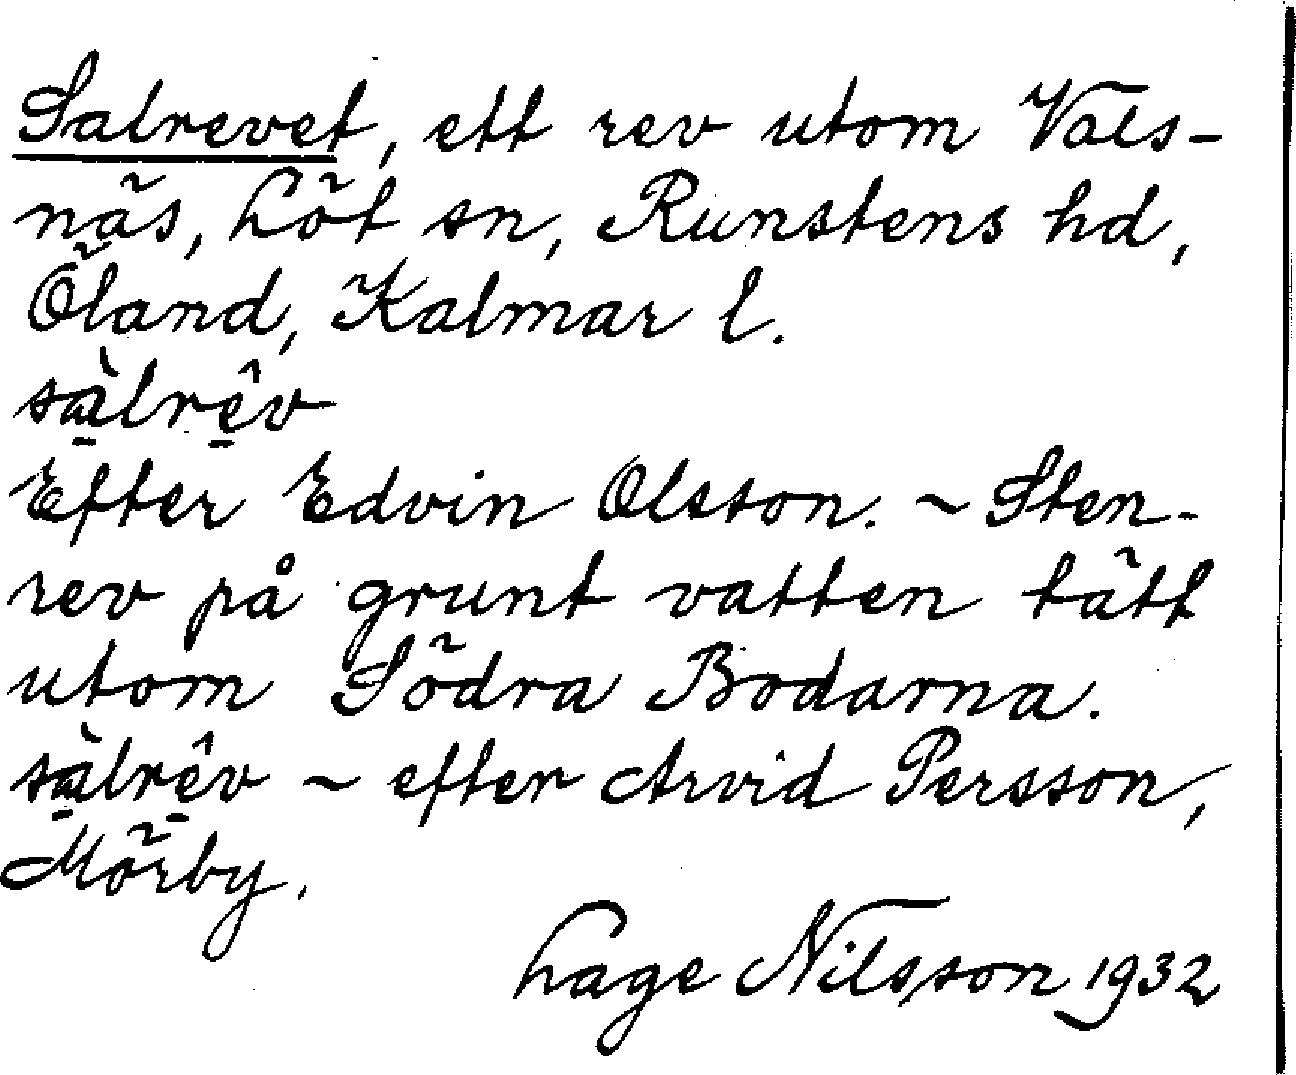 Salrevet, ett rev utom Vals-
näs, Löt sn, Runstens hd,
Öland, Kalmar l.
sà̱lrê̱v
Efter Edvin Olsson. ~ Sten-
rev på grunt vatten tätt
utom Södra Bodarna.
sà̱lrê̱v ~ efter Arvid Persson,
Mörby.
Lage Nilsson 1932